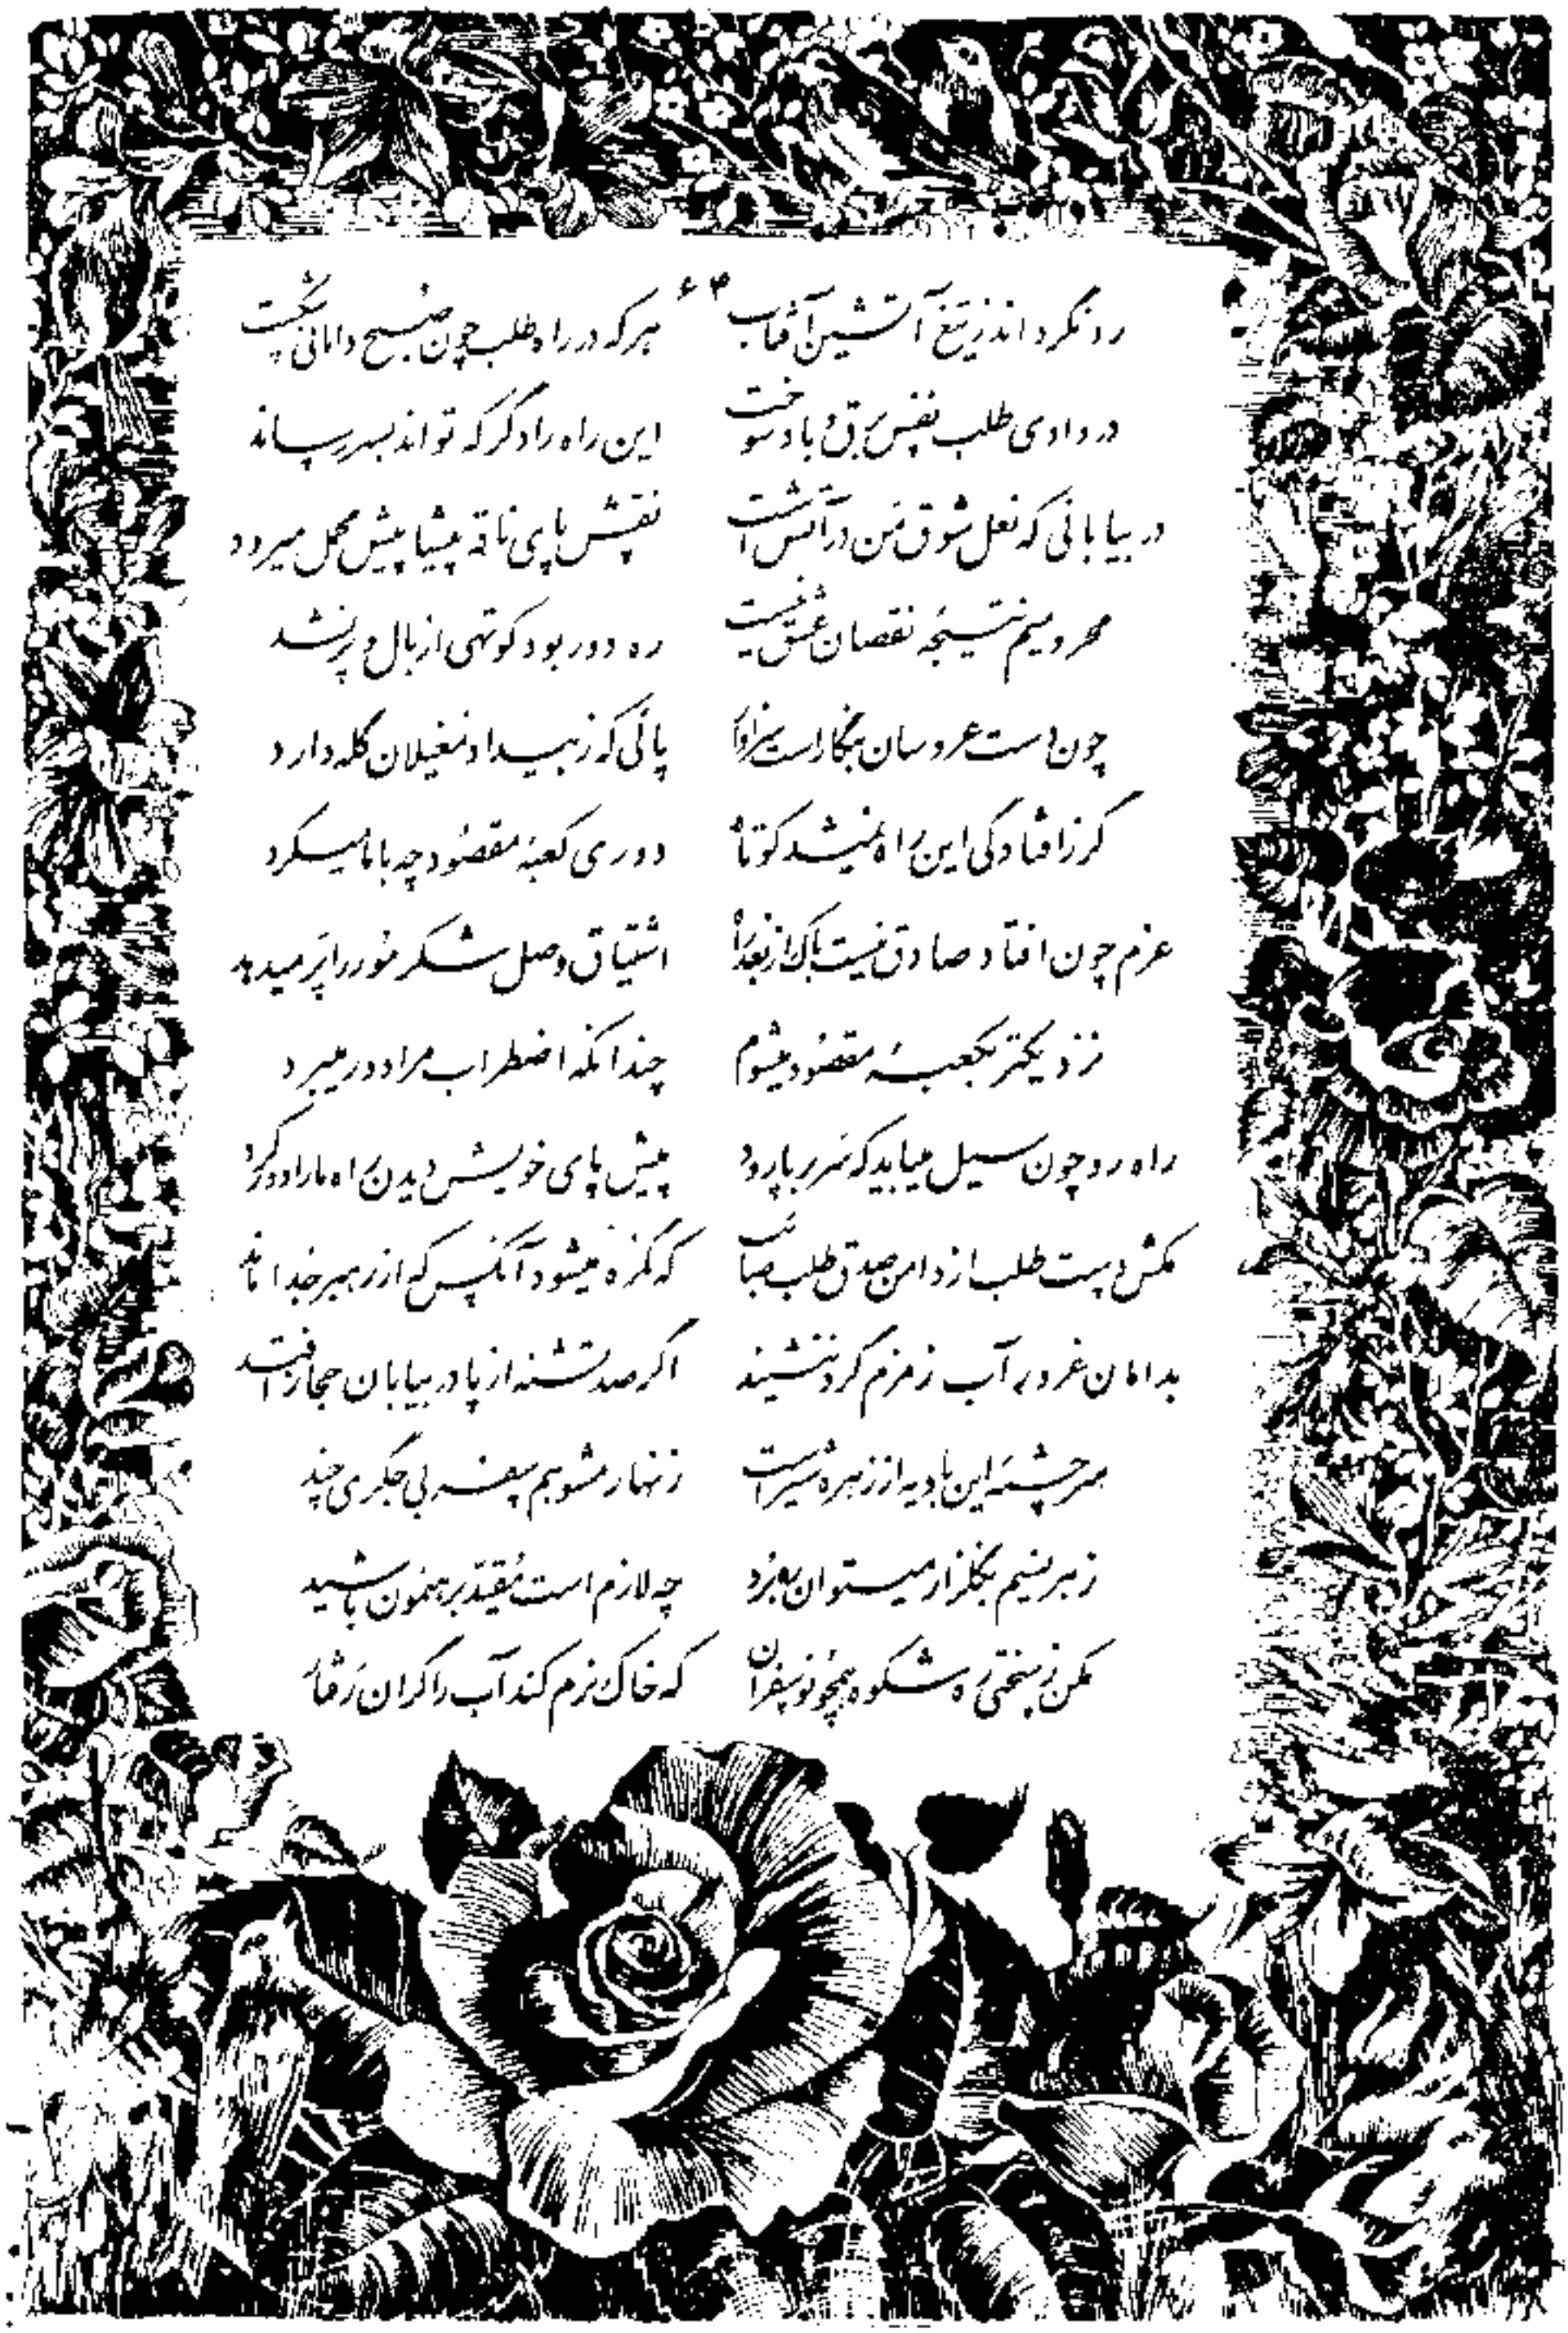 ۶۳
رو نگرداند ز تیغ آتشین آفتاب هر که در راه طلب چون صبح دامانی شکست
در وادی طلب نفس برق و باد سوخت این راه را دگر که تواند بسر رساند
در بیابانی که نعل شوق من در آتش است نقش پای ناقه پیشاپیش محمل میرود
محرومیم نتیجهٔ نقصان عشق نیست ره دور بود کوتهی از بال و پر نشد
چون دست عروسان بنگار است سزاوار پائی که ز بیداد مغیلان گله دارد
گر ز افتادگی این راه نمیشد کوتاه دوری کعبهٔ مقصود چه با ما میکرد
عزم چون افتاد صادق نیست باک از بعد راه اشتیاق وصل شکر مور را پر میدهد
نزدیکتر بکعبهٔ مقصود میشوم چندانکه اضطراب مرا دور میبرد
راه رو چون سیل میباید که سر بر پا رود پیش پای خویش دیدن راه ما را دور کرد
مکش دست طلب از دامن صدق طلب صائب که گمره میشود آنکس که از رهبر جدا ماند
بدامان غرور آب زمزم گرد ننشیند اگر صد تشنه از پا در بیابان حجاز افتد
سرچشمهٔ این بادیه از زهره شیر است زنهار مشو همسفر بی جگری چند
ز هر نسیم بگلزار میتوان ره برد چه لازم است مقید برهنمون باشید
مکن ز سختی ره شکوه همچو نوسفران که خاک نرم کند آب را گران رفتار